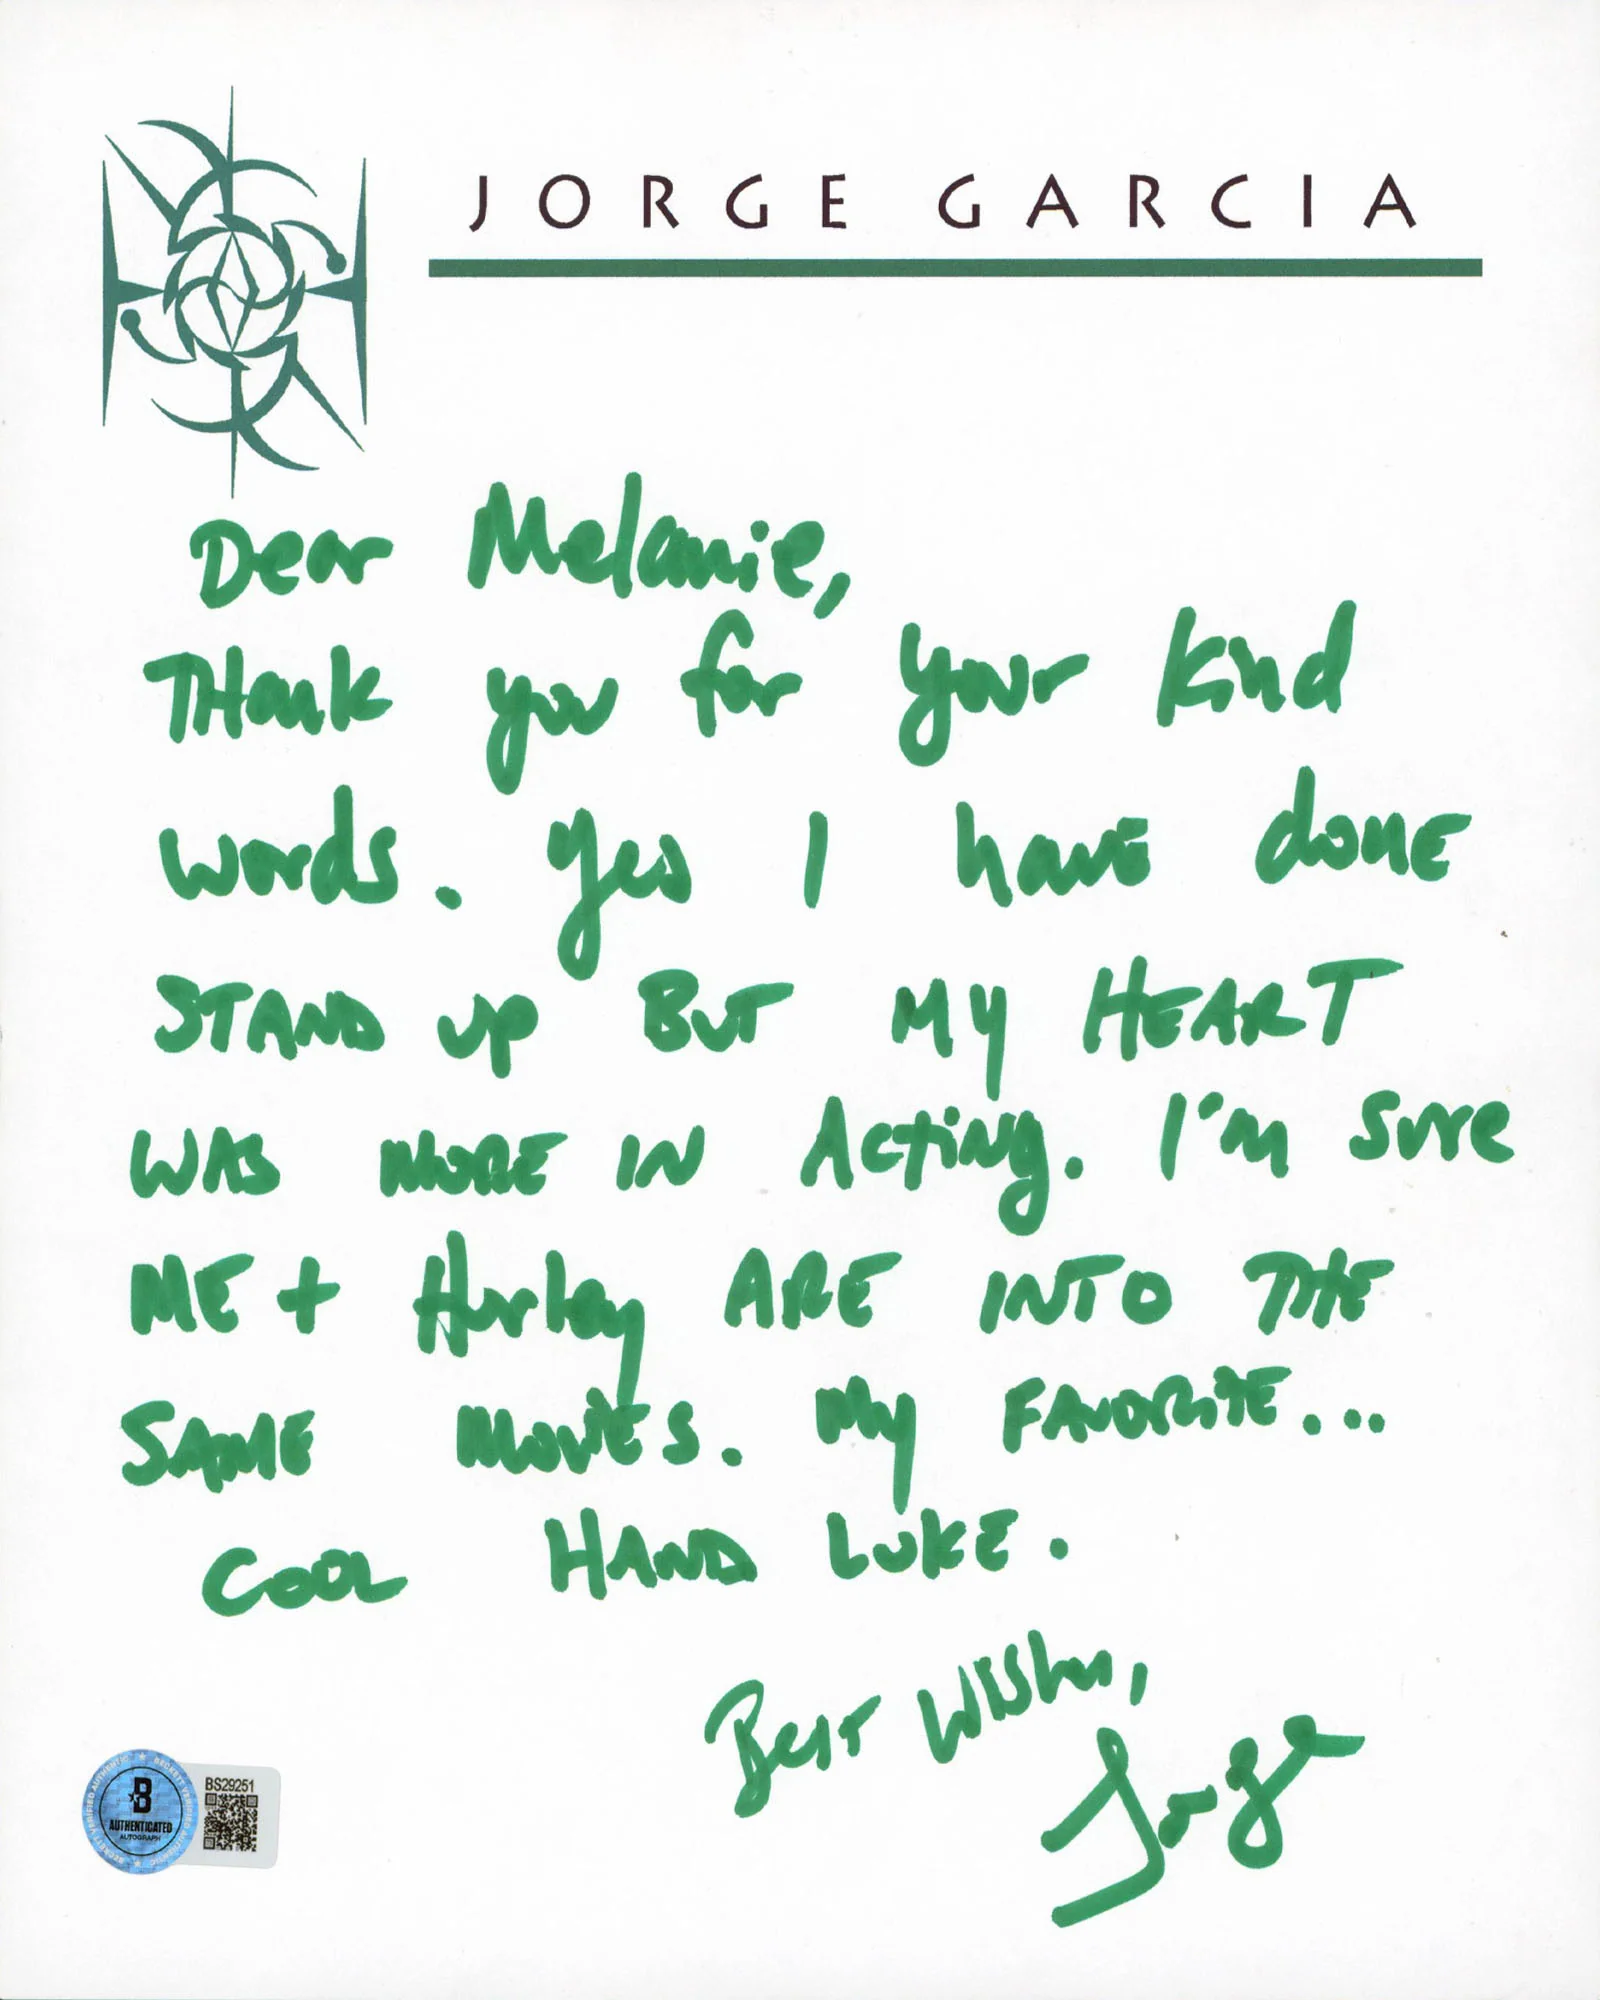 JORGE GARCIA
Dear Melanie,
THank you for your kind
words. Yes I have done
STAND UP BUT MY HEART
WAS MORE IN Acting. I'm sure
ME + Hurley ARE INTO THE
SAME MOVIES. My FAVORITE...
COOL HAND LUKE.
Best Wishes,
Jorge
BECKETT VERIFIED AUTHENTIC
B
AUTHENTICATED
AUTOGRAPH
BS29251